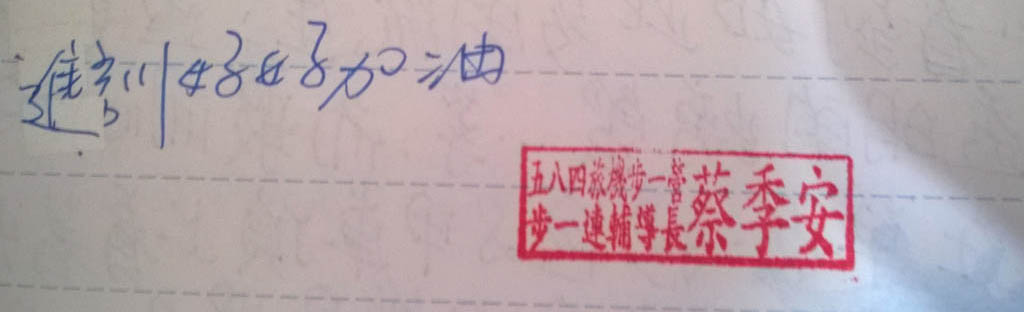 進訓好好加油
五八四旅機步一營
步一連輔導長
蔡季安